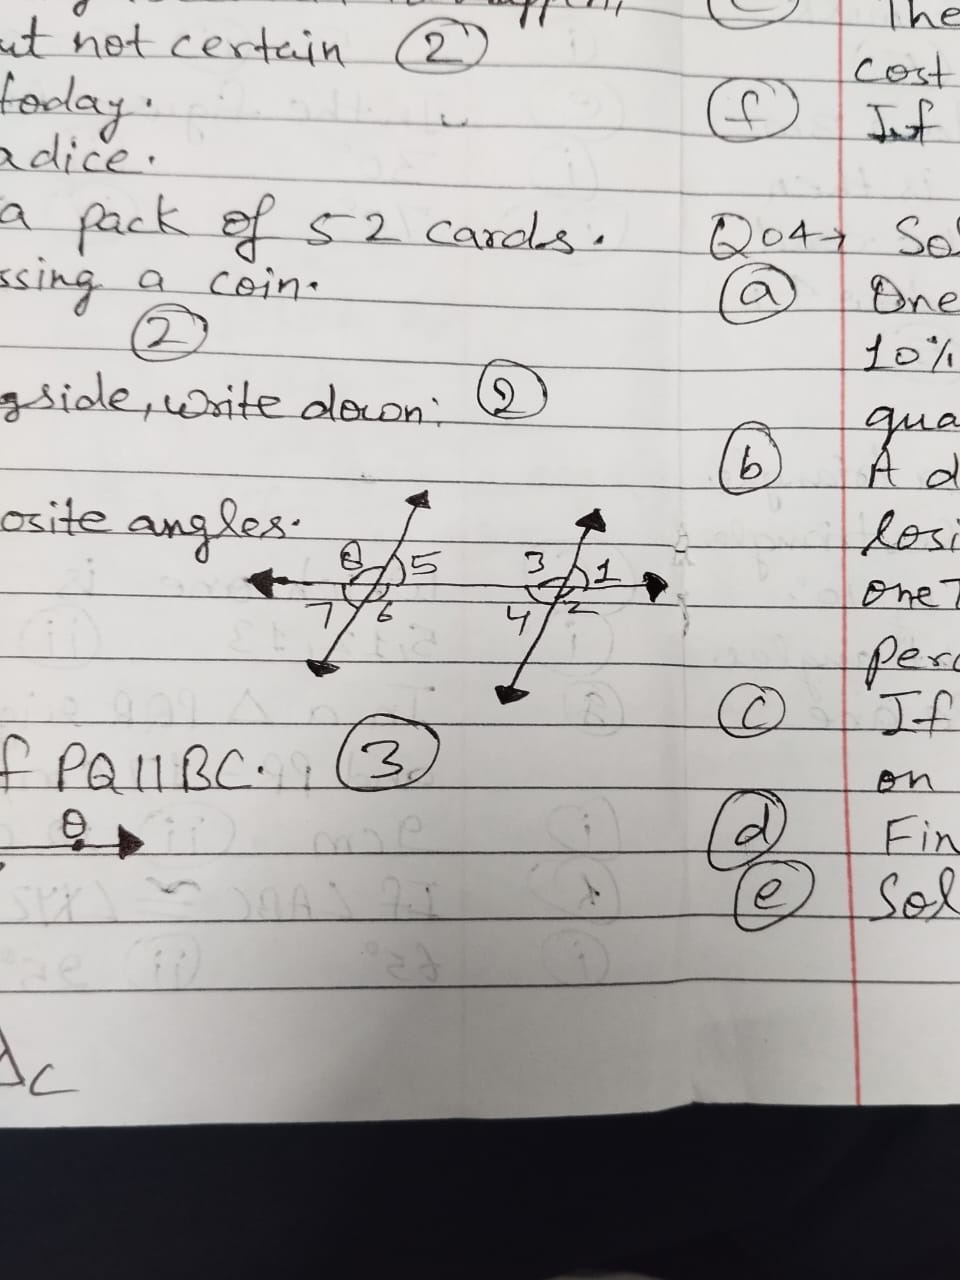 ut not certain (2)
today.
a dice.
a pack of 52 cards.
ssing a coin.
(2)
gside, write down: (2)
osite angles.
8 5 3 1
7 6 4 2
f PQ || BC. (3)
Q
C
The
cost
(f) If
Q04→ Sol
(a) One
10%
qua
(b) A d
losi
one
perc
(c) If
on
(d) Fin
(e) Sol